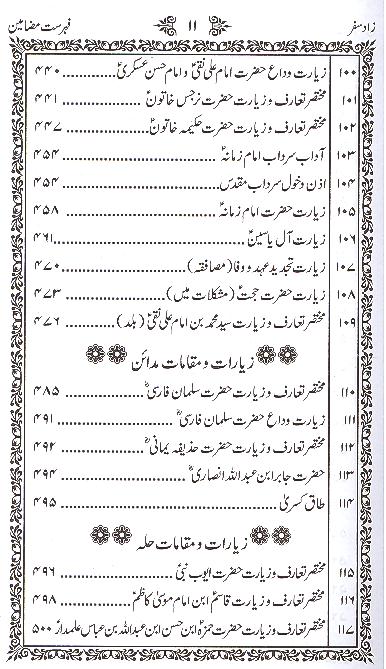 زادسفر ۱۱ فہرست مضامین
۱۰۰ زیارت وداع حضرت امام علی نقیؑ و امام حسن عسکریؑ ۴۴۰
۱۰۱ مختصر تعارف و زیارت حضرت نرجس خاتونؑ ۴۴۱
۱۰۲ مختصر تعارف و زیارت حضرت حکیمہ خاتونؑ ۴۴۷
۱۰۳ آداب سرداب امام زمانہؑ ۴۵۴
۱۰۴ اذن دخول سرداب مقدس ۴۵۴
۱۰۵ زیارت حضرت امام زمانہؑ ۴۵۸
۱۰۶ زیارت آل یاسینؑ ۴۶۱
۱۰۷ زیارت تجدید عہد و وفا (مصافقہ) ۴۷۰
۱۰۸ زیارت حضرت حجتؑ (مشکلات میں) ۴۷۳
۱۰۹ مختصر تعارف و زیارت سید محمد بن امام علی نقیؑ (بلد) ۴۷۶
زیارات و مقامات مدائن
۱۱۰ مختصر تعارف و زیارت حضرت سلمان فارسیؓ ۴۸۵
۱۱۱ زیارت وداع حضرت سلمان فارسیؓ ۴۹۱
۱۱۲ مختصر تعارف و زیارت حضرت حذیفہ یمانیؓ ۴۹۲
۱۱۳ حضرت جابر ابن عبداللہ انصاریؓ ۴۹۴
۱۱۴ طاق کسریٰ ۴۹۵
زیارات و مقامات حلہ
۱۱۵ مختصر تعارف و زیارت حضرت ایوب نبیؑ ۴۹۶
۱۱۶ مختصر تعارف و زیارت قاسمؑ ابن امام موسیٰ کاظمؑ ۴۹۸
۱۱۷ مختصر تعارف و زیارت حضرت حمزہؑ ابن حسن ابن عبداللہ بن عباس علمدارؑ ۵۰۰